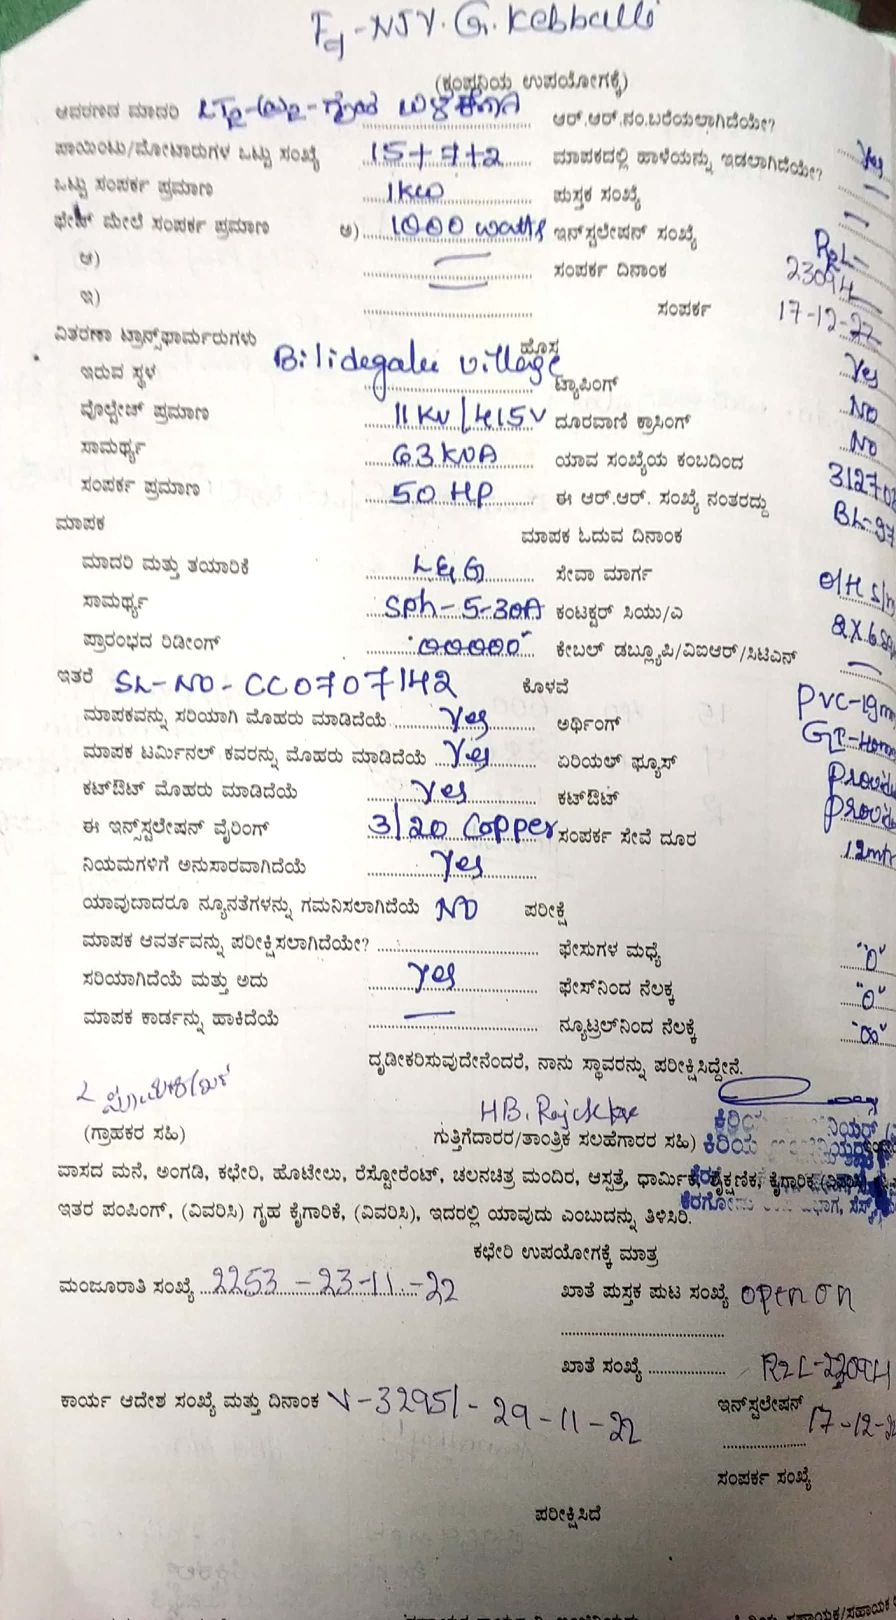 Fd-NJY. G. Kebballi
(ಕಂಪನಿಯ ಉಪಯೋಗಕ್ಕೆ)
ಆವರಣದ ಮಾದರಿ ಆರ್.ಆರ್.ನಂ.ಬರೆಯಲಾಗಿದೆಯೇ? Yes
ಪಾಯಿಂಟು/ಮೋಟಾರುಗಳ ಒಟ್ಟು ಸಂಖ್ಯೆ 15+7+2 ಮಾಪಕದಲ್ಲಿ ಹಾಳೆಯನ್ನು ಇಡಲಾಗಿದೆಯೇ? —
ಒಟ್ಟು ಸಂಪರ್ಕ ಪ್ರಮಾಣ 1KW ಪುಸ್ತಕ ಸಂಖ್ಯೆ —
ಫೇಜ್ ಮೇಲೆ ಸಂಪರ್ಕ ಪ್ರಮಾಣ ಅ) 1000 watts ಇನ್‌ಸ್ಟಲೇಷನ್ ಸಂಖ್ಯೆ R2L-23094
ಆ) — ಸಂಪರ್ಕ ದಿನಾಂಕ 17-12-22
ಇ) — ಸಂಪರ್ಕ
ವಿತರಣಾ ಟ್ರಾನ್ಸ್‌ಫಾರ್ಮರುಗಳು ಹೊಸ Yes
ಇರುವ ಸ್ಥಳ Bilidegalu village ಟ್ಯಾಪಿಂಗ್ NO
ವೊಲ್ಟೇಜ್ ಪ್ರಮಾಣ 11KV/415V ದೂರವಾಣಿ ಕ್ರಾಸಿಂಗ್ NO
ಸಾಮರ್ಥ್ಯ 63 KVA ಯಾವ ಸಂಖ್ಯೆಯ ಕಂಬದಿಂದ
ಸಂಪರ್ಕ ಪ್ರಮಾಣ 50 HP ಈ ಆರ್.ಆರ್. ಸಂಖ್ಯೆ ನಂತರದ್ದು
ಮಾಪಕ ಮಾಪಕ ಓದುವ ದಿನಾಂಕ
ಮಾದರಿ ಮತ್ತು ತಯಾರಿಕೆ L&G ಸೇವಾ ಮಾರ್ಗ
ಸಾಮರ್ಥ್ಯ Sph-5-30A ಕಂಟಕ್ಟರ್ ಸಿಯು/ಎ
ಪ್ರಾರಂಭದ ರಿಡೀಂಗ್ "00000" ಕೇಬಲ್ ಡಬ್ಲ್ಯೂಪಿ/ವಿಐಆರ್/ಸಿಟಿಎಸ್ —
ಇತರೆ SL-NO-CC0707142 ಕೊಳವೆ
ಮಾಪಕವನ್ನು ಸರಿಯಾಗಿ ಮೊಹರು ಮಾಡಿದೆಯೆ Yes ಅರ್ಥಿಂಗ್
ಮಾಪಕ ಟರ್ಮಿನಲ್ ಕವರನ್ನು ಮೊಹರು ಮಾಡಿದೆಯೆ Yes ಏರಿಯಲ್ ಫ್ಯೂಸ್
ಕಟ್‌ಔಟ್ ಮೊಹರು ಮಾಡಿದೆಯೆ Yes ಕಟ್‌ಔಟ್
ಈ ಇನ್ಸ್‌ಸ್ಟಲೇಷನ್ ವೈರಿಂಗ್ 3/20 Copper ಸಂಪರ್ಕ ಸೇವೆ ದೂರ 12mtr
ನಿಯಮಗಳಿಗೆ ಅನುಸಾರವಾಗಿದೆಯೆ Yes
ಯಾವುದಾದರೂ ನ್ಯೂನತೆಗಳನ್ನು ಗಮನಿಸಲಾಗಿದೆಯೆ NO ಪರೀಕ್ಷೆ
ಮಾಪಕ ಆವರ್ತವನ್ನು ಪರೀಕ್ಷಿಸಲಾಗಿದೆಯೇ? ಫೇಸುಗಳ ಮಧ್ಯೆ "0"
ಸರಿಯಾಗಿದೆಯೆ ಮತ್ತು ಅದು Yes ಫೇಸ್‌ನಿಂದ ನೆಲಕ್ಕೆ "0"
ಮಾಪಕ ಕಾರ್ಡನ್ನು ಹಾಕಿದೆಯೆ — ನ್ಯೂಟ್ರಲ್‌ನಿಂದ ನೆಲಕ್ಕೆ "00"
ದೃಡೀಕರಿಸುವುದೇನೆಂದರೆ, ನಾನು ಸ್ಥಾವರನ್ನು ಪರೀಕ್ಷಿಸಿದ್ದೇನೆ.
(ಗ್ರಾಹಕರ ಸಹಿ) ಗುತ್ತಿಗೆದಾರರ/ತಾಂತ್ರಿಕ ಸಲಹೆಗಾರರ ಸಹಿ)
ವಾಸದ ಮನೆ, ಅಂಗಡಿ, ಕಛೇರಿ, ಹೊಟೇಲು, ರೆಸ್ಟೋರೆಂಟ್, ಚಲನಚಿತ್ರ ಮಂದಿರ, ಆಸ್ಪತ್ರೆ, ಧಾರ್ಮಿಕ, ಶೈಕ್ಷಣಿಕ, ಕೈಗಾರಿಕೆ
ಇತರ ಪಂಪಿಂಗ್, (ವಿವರಿಸಿ) ಗೃಹ ಕೈಗಾರಿಕೆ, (ವಿವರಿಸಿ), ಇದರಲ್ಲಿ ಯಾವುದು ಎಂಬುದನ್ನು ತಿಳಿಸಿರಿ.
ಕಛೇರಿ ಉಪಯೋಗಕ್ಕೆ ಮಾತ್ರ
ಮಂಜೂರಾತಿ ಸಂಖ್ಯೆ 2253 - 23-11-22 ಖಾತೆ ಪುಸ್ತಕ ಪುಟ ಸಂಖ್ಯೆ open on
ಖಾತೆ ಸಂಖ್ಯೆ
ಕಾರ್ಯ ಆದೇಶ ಸಂಖ್ಯೆ ಮತ್ತು ದಿನಾಂಕ V-3295/- 29-11-22 ಇನ್‌ಸ್ಟಲೇಷನ್
ಸಂಪರ್ಕ ಸಂಖ್ಯೆ
ಪರೀಕ್ಷಿಸಿದೆ